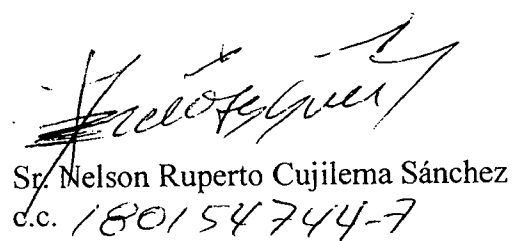 Sr. Nelson Ruperto Cujilema Sánchez
c.c. 180154744-7